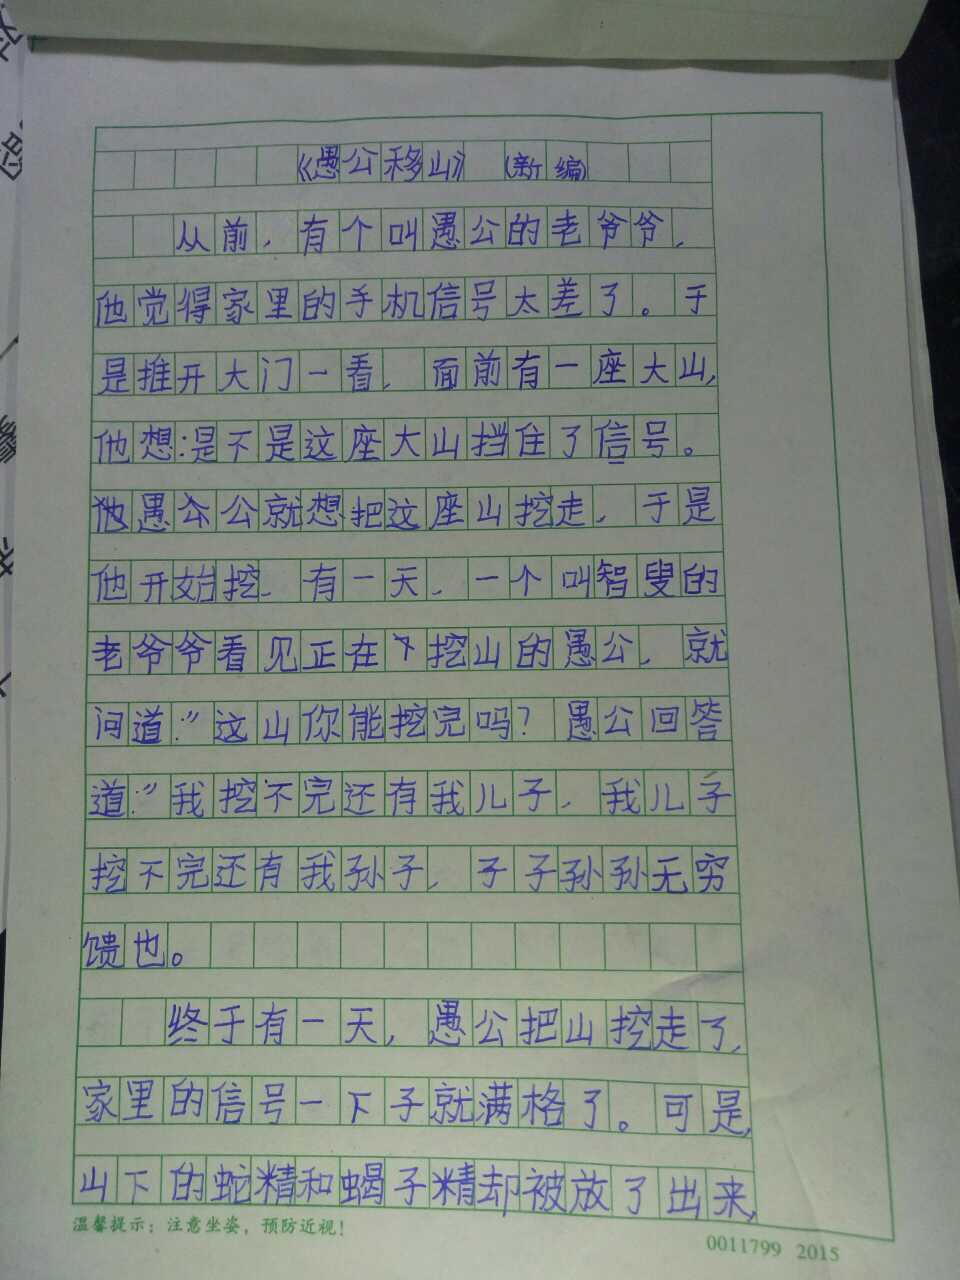 《愚公移山》（新编）
从前，有个叫愚公的老爷爷，
他觉得家里的手机信号太差了。于
是推开大门一看，面前有一座大山，
他想:是不是这座大山挡住了信号。
他愚公公就想把这座山挖走，于是
他开始挖，有一天，一个叫智叟的
老爷爷看见正在下挖山的愚公，就
问道:“这山你能挖完吗？愚公回答
道:“我挖不完还有我儿子，我儿子
挖不完还有我孙子，子子孙孙无穷
馈也。
终于有一天，愚公把山挖走了，
家里的信号一下子就满格了。可是，
山下的蛇精和蝎子精却被放了出来，
温馨提示：注意坐姿，预防近视！
0011799 2015